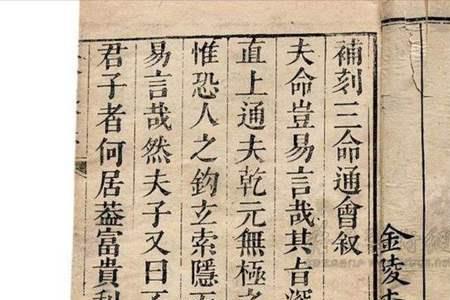 補刻三命通會叙
夫命豈易言哉其㫖深
直上通夫乾元無極之
惟恐人之鈎立索隱
易言哉然夫子又曰不
君子者何居葢富貴利
金陵